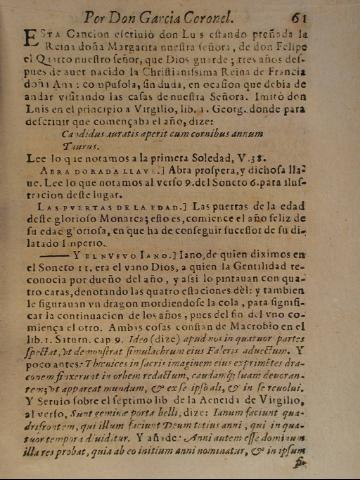 Por Don Garcia Coronel. 61
ESTA Cancion escriuiò don Luis estando preñada la
Reina doña Margarita nuestra señora, de don Felipe
el Quarto nuestro señor, que Dios guarde; tres años des-
pues de auer nacido la Christianissima Reina de Francia
doña Ana: compusola, sin duda, en ocasion que debia de
andar visitando las casas de nuestra Señora. Imitò don
Luis en el principio a Virgilio, lib. 1. Georg. donde para
descriuir que començaba el año, dize:
Candidus auratis aperit cum cornibus annum
Taurus.
Lee lo que notamos a la primera Soledad, V. 38.
ABRA DORADA LLAVE.] Abra prospera, y dichosa lla-
ue. Lee lo que notamos al verso 9. del Soneto 6. para ilus-
tracion deste lugar.
LAS PVERTAS DE LA EDAD.] Las puertas de la edad
deste glorioso Monarca; esto es, comience el año feliz de
su edad gloriosa, en que ha de conseguir sucessor de su di-
latado Imperio.
— Y EL NVEVO IANO.] Iano, de quien diximos en
el Soneto 11. era el vano Dios, a quien la Gentilidad re-
conocia por dueño del año, y assi lo pintauan con qua-
tro caras, denotando las quatro estaciones dèl: y tambien
le figurauan vn dragon mordiendose la cola, para signifi-
car la continuacion de los años, pues del fin del vno co-
miença el otro. Ambas cosas constan de Macrobio en el
lib. 1. Saturn. cap 9. Ideo (dize) apud nos in quatuor partes
spectat, vt demonstrat simulachrum eius Faleris aduectum. Y
poco antes: Phœnices in sacris imaginem eius exprimètes dra-
conem finxerunt in orbem redactum, caudamq; suam deuoran-
tem; vt appareat mundum, & ex se ipso ali, & in se reuolui.
Y Seruio sobre el septimo lib de la Aeneida de Virgilio,
al verso, Sunt geminæ porta belli, dize: Ianum faciunt qua-
drifrontem, qui illum faciunt Deum totius anni, qui in qua-
tuor tempora diuiditur. Y añade: Anni autem esse dominum
illa res probat, quia ab eo initium anni nominatur, & in ipsum